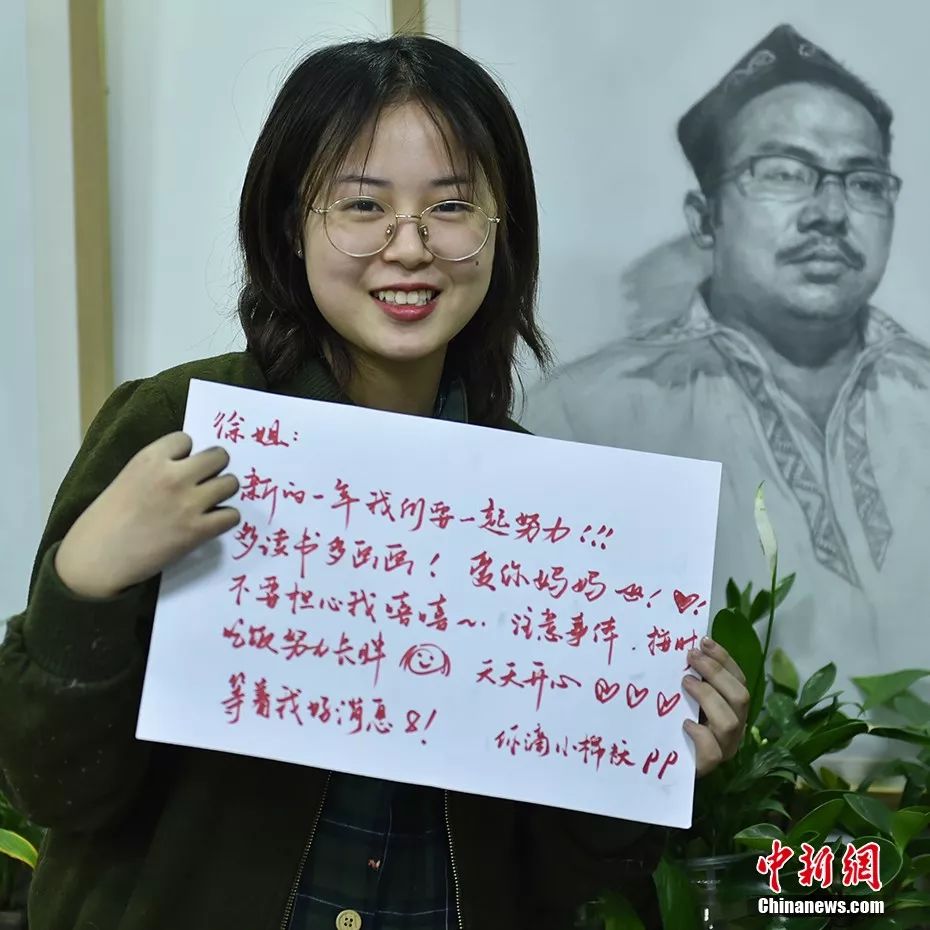 徐姐:
新的一年我们要一起努力!!!
多读书多画画! 爱你妈妈
不要担心我嘻嘻~. 注意事体.按时
吃饭努力长胖 天天开心
等着我好消息8!
你滴小棉袄PP
中新网
Chinanews.com